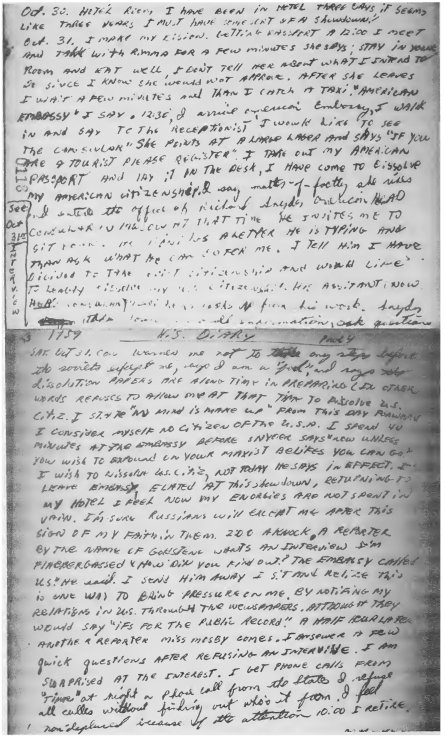 Oct. 30. HOTEL ROOM I HAVE BEEN IN HOTEL THREE DAYS, IT SEEMS
LIKE THREE YEARS I MUST HAVE SOME SORT OF A SHOWDOWN!
Oct. 31. I MAKE MY
PASSPORT A 12:00 I MEET
AND TALK WITH RIMMA FOR A FEW MINUTES SHE SAYS; STAY IN YOUR
ROOM AND EAT WELL, I DON'T TELL HER ABOUT WHAT I INTEND TO
DO SINCE I KNOW SHE WOULD NOT APPROVE. AFTER SHE LEAVES
I WAIT A FEW MINUTES AND THAN I CATCH A TAXI, "AMERICAN
EMBASSY" I SAY. 12:30, I arrive american Embassy, I WALK
IN AND SAY TO THE RECEPTIONIST "I WOULD LIKE TO SEE
THE CONSULAR" SHE POINTS AT A LARGE LAGER AND SAYS "IF YOU
ARE A TOURIST PLEASE REGISTER" I TAKE OUT MY AMERICAN
PASSPORT AND LAY IT ON THE DESK, I HAVE COME TO DISSOLVE
MY AMERICAN CITIZENSHIP, I say matter-of-factly she rises
the office of Richard Snyder american HEAD
CONSULAR IN AT THAT TIME HE INVITES ME TO
SIT A LETTER HE IS TYPING AND
THAN ASK WHAT HE CAN DO FER ME. I TELL HIM I HAVE
DICIDED TO TAKE CITIZENSHIP AND WOULD LIKE
TO LEGALLY DISSOLVE MY CITIZENSHIP. HIS ASSISTANT, NOW
HEAD looks up from his work. Snyder
information, ask questions
See
Oct
31st
INTERVIEW
1959 H.S. DIARY
SAT. Oct 31. Con warnes me not to take any steps before
the soviets except me, says I am a "fool", and says the
dissolution PAPERS ARE ALONG TIME IN PREPARING (IN OTHER
WORDS REFUSES TO ALLOW ME AT THAT TIME TO DISSOLVE U.S.
CITIZ. I STATE "MY MIND IS MAKE UP" FROM THIS DAY FORWARD
I CONSIDER MYSELF NO CITIZEN OF THE U.S.A. I SPEND 40
MINUTES AT THE EMBASSY BEFORE SNYDER SAYS "NOW UNLESS
YOU WISH TO EXPOUND ON YOUR MAXIST BELIFES YOU CAN GO."
I WISH TO DISSOLVE U.S. CITIZ., NOT TODAY HE SAYS IN EFFECT. I
LEAVE EMBASSY, ELATED AT THIS SHOWDOWN, RETURNING TO
MY HOTEL I FEEL NOW MY ENORGIES ARE NOT SPENT IN
VAIN. I'M SURE RUSSIANS WILL EXCEPT ME AFTER THIS
SIGN OF MY FAITH IN THEM. 2:00 A KNOCK, A REPORTER
BY THE NAME OF GOLDSTENE WANTS AN INTERVIEW I'M
FLABBERGASSED "HOW DID YOU FIND OUT? THE EMBASSY CALLED
US." He said. I SEND HIM AWAY I SIT AND RELIZE THIS
IS ONE WAY TO BRING PRESSURE ON ME. BY NOTIFING MY
RELATIONS IN U.S. THROUGH THE NEWSPAPERS. ALTHOUGH THEY
WOULD SAY "ITS FOR THE PUBLIC RECORD" A HALF HOUR LATER
ANOTHER REPORTER MISS MOSBY COMES. I ANSEWER A FEW
QUICK QUESTIONS AFTER REFUSING AN INTERVIWE. I AM
SURPRISED AT THE INTEREST. I GET PHONE CALLS FROM
"TIME" at night a phone call from the States I refuse
all calles without finding out who's it from. I feel
non-deplused because of the attention 10:00 I RETIRE.